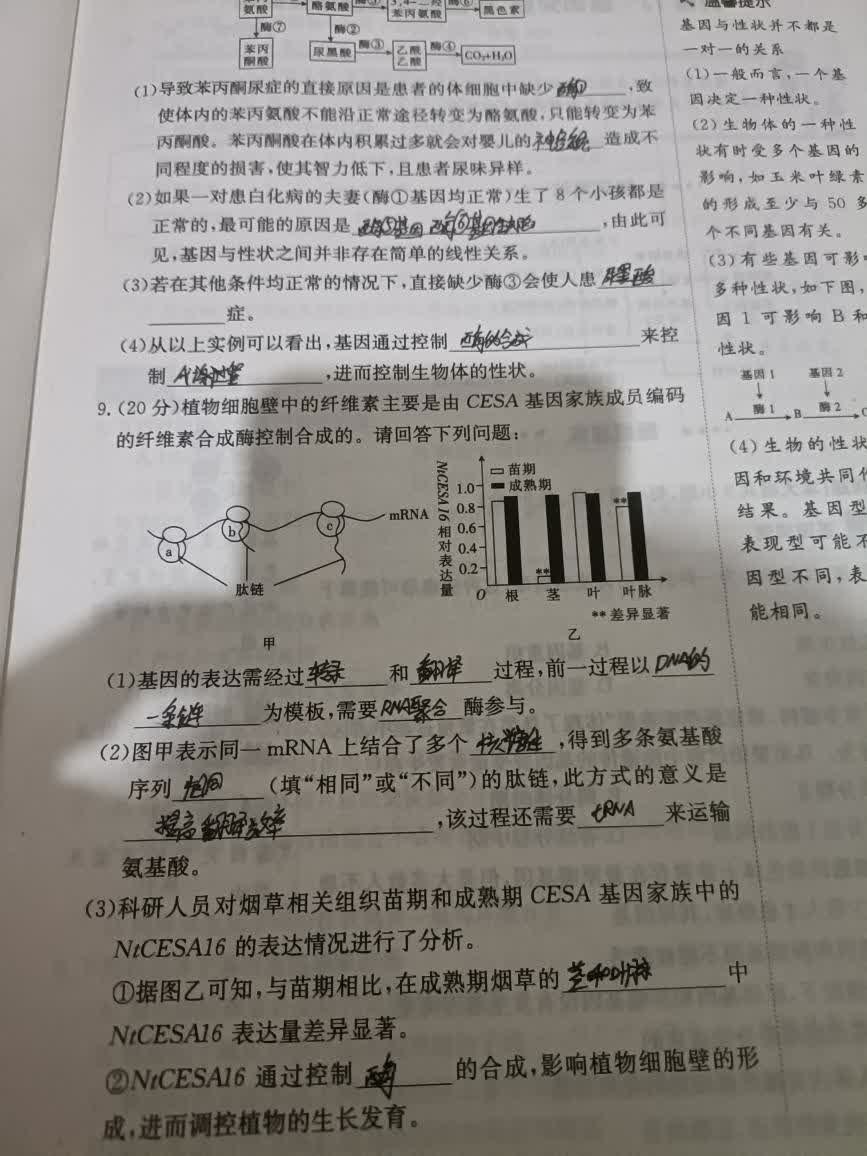 氨酸 酪氨酸 苯丙氨酸 黑色素
酶⑦ 酶②
苯丙酮酸 尿黑酸 酶③ 乙酰乙酸 酶④ CO₂+H₂O
(1)导致苯丙酮尿症的直接原因是患者的体细胞中缺少酶①,致
使体内的苯丙氨酸不能沿正常途径转变为酪氨酸,只能转变为苯
丙酮酸。苯丙酮酸在体内积累过多就会对婴儿的神经系统造成不
同程度的损害,使其智力低下,且患者尿味异样。
(2)如果一对患白化病的夫妻(酶①基因均正常)生了8个小孩都是
正常的,最可能的原因是 ,由此可
见,基因与性状之间并非存在简单的线性关系。
(3)若在其他条件均正常的情况下,直接缺少酶③会使人患尿黑酸
症。
(4)从以上实例可以看出,基因通过控制酶的合成来控
制代谢过程,进而控制生物体的性状。
9.(20分)植物细胞壁中的纤维素主要是由CESA基因家族成员编码
的纤维素合成酶控制合成的。请回答下列问题:
a b c mRNA
肽链
甲
NtCESA16相对表达量
苗期
成熟期
1.0
0.8
0.6
0.4
0.2
O 根 茎 叶 叶脉
** **
**差异显著
乙
(1)基因的表达需经过转录和翻译过程,前一过程以DNA的
一条链为模板,需要RNA聚合酶参与。
(2)图甲表示同一mRNA上结合了多个核糖体,得到多条氨基酸
序列相同(填“相同”或“不同”)的肽链,此方式的意义是
提高翻译效率,该过程还需要tRNA来运输
氨基酸。
(3)科研人员对烟草相关组织苗期和成熟期CESA基因家族中的
NtCESA16的表达情况进行了分析。
①据图乙可知,与苗期相比,在成熟期烟草的茎和叶脉中
NtCESA16表达量差异显著。
②NtCESA16通过控制酶的合成,影响植物细胞壁的形
成,进而调控植物的生长发育。
温馨提示
基因与性状并不都是
一对一的关系
(1)一般而言,一个基
因决定一种性状。
(2)生物体的一种性
状有时受多个基因的
影响,如玉米叶绿素
的形成至少与50多
个不同基因有关。
(3)有些基因可影响
多种性状,如下图,
因1可影响B和
性状。
基因1 基因2
A 酶1 B 酶2
(4)生物的性状
因和环境共同
结果。基因型
表现型可能不
因型不同,表
能相同。